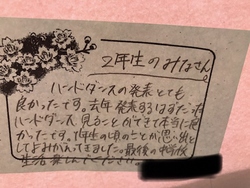 2年生のみなさん
ハンドダンスの発表とても
良かったです。去年発表するはずだった
ハンドダンス見ることができて本当に良
かったです。1年生の頃のことが思い出と
してよみがえってきました。最後の中学校
生活楽しんでください